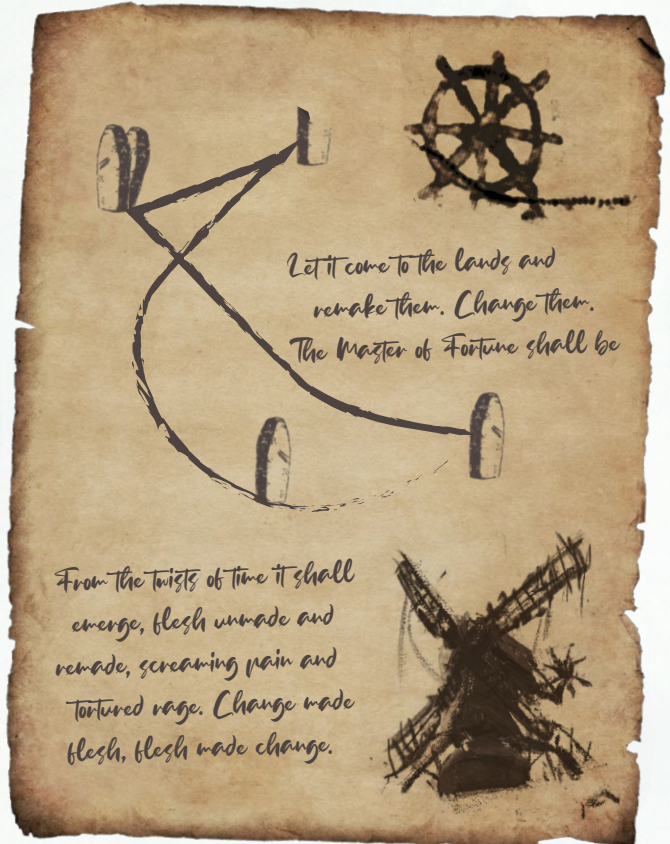 Let it come to the lands and
remake them. Change them.
The Master of Fortune shall be
From the twists of time it shall
emerge, flesh unmade and
remade, screaming pain and
tortured rage. Change made
flesh, flesh made change.